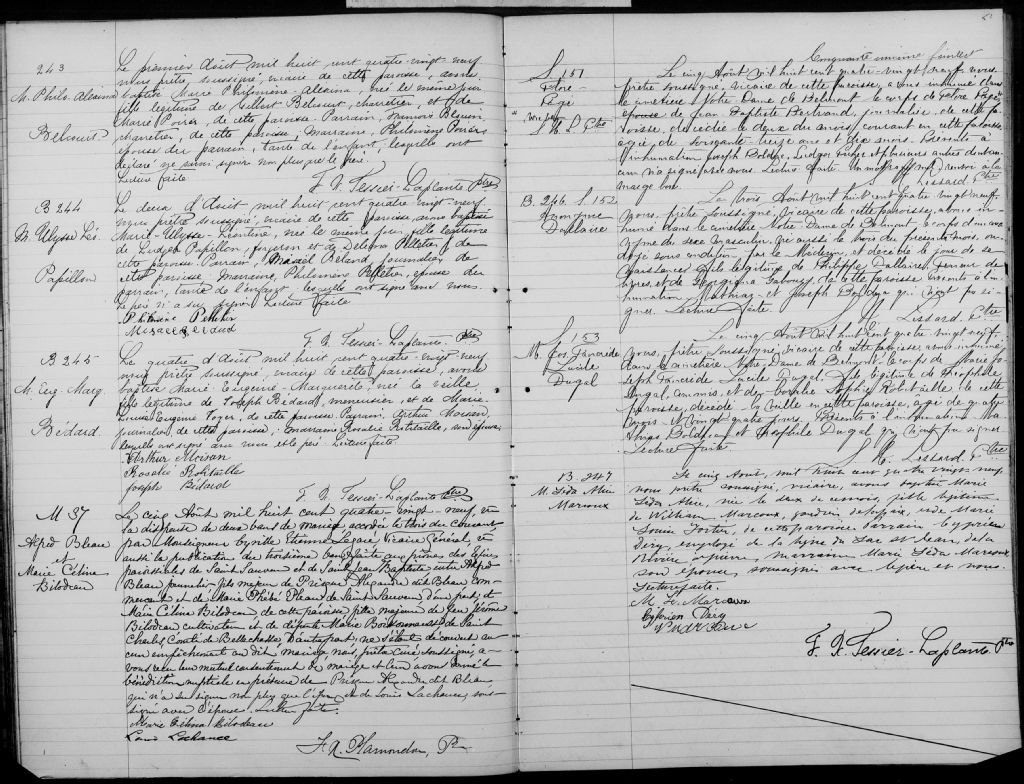 243
M. Philo. Alexina
Belcourt
Le premier Août mil huit cent quatre-vingt-neuf
nous prêtre soussigné, vicaire de cette paroisse, avons
baptisé Marie Philomène-Alexina, née le même jour
fille légitime de Gilbert Belcourt, charretier, et de
Marie Poirés, de cette paroisse. Parrain, François
charretier, de cette paroisse, Marraine, Philomène Poirés
épouse du parrain, tante de l'enfant, lesquelle ont
déclaré ne savoir signer non plus que le père.
Lecture faite
F. V. Tessier-Laplante Ptre
B 244
M. Ulysse Léo.
Papillon
Le deux d'Août mil huit cent quatre-vingt-neuf
nous prêtre soussigné, vicaire de cette paroisse, avons baptisé
Marie-Ulysse-Léontine, née le même jour, fille légitime
de Ludger Papillon, forgeron et de Delvina Pelletier de
cette paroisse. Parrain, Misaël Béland journalier, de
cette paroisse, Marraine, Philomène Pelletier, épouse du
parrain, tante de l'enfant, lesquelles ont signé avec nous.
Le père n'a su signer. Lecture faite
Philomène Pelletier
F. V. Tessier-Laplante Ptre
B 245
M. Eug. Marg.
Bédard.
Le quatre d'Août mil huit cent quatre-vingt-neuf
nous prêtre soussigné, vicaire de cette paroisse, avons
baptisé Marie-Eugénie-Marguerite, née la veille,
fille légitime de Joseph Bédard, menuisier, et de Marie-
Louise Eugénie Foger, de cette paroisse. Parrain, Arthur Moisan,
journalier, de cette paroisse; Marraine Rosalie Robitaille, son épouse,
lesquelles ont signé avec nous et le père. Lecture faite.
Arthur Moisan
Rosalie Robitaille
Joseph Bédard
F. V. Tessier-Laplante Ptre
M 37
Alfred Bleau
et
Marie Célina
Bilodeau
Le cinq Août mil huit cent quatre-vingt-neuf, vu
la dispense de deux bans de mariage accordée le trois du courant
par Monseigneur Cyrille Etienne Légaré Vicaire Général, vu
aussi la publication du troisième ban faite aux prônes des Eglises
paroissiales de Saint Sauveur et de Saint Jean Baptiste entre Alfred
Bleau journalier fils majeur de Prisque Alexandre dit Bleau com-
merçant et de Marie Thibé Pleau de Saint Sauveur d'une part, et
Marie Célina Bilodeau de cette paroisse fille majeure de feu Jérôme
Bilodeau cultivateur et de défunte Marie de Saint
Charles, Comté de Bellechasse d'autre part; ne s'étant découvert au-
cun empêchement au dit mariage, nous, prêtre curé soussigné, a-
vons reçu leur mutuel consentement de mariage et leur avons donné la
bénédiction nuptiale en présence de Prisque Alexandre dit Bleau
qui n'a su signer non plus que l'époux et de Louis Lachance, sous-
signé avec l'épouse. Lecture faite.
Marie Célina Bilodeau
Louis Lachance
F. X. Plamondon, Ptre
Cinquante unième feuillet
51
S. 151
Flore
Pagé
S. M. L. Ptre
Le cinq Août mil huit cent quatre-vingt-neuf, nous
prêtre soussigné, vicaire de cette paroisse, avons inhumé dans
le cimetière Notre Dame de Belmont le corps de Flore Pagé,
épouse de Jean Baptiste Bertrand, journalier, de cette pa-
roisse, décédée le deux du mois courant en cette paroisse,
agée de soixante-treize ans et dix mois. Présents à
l'inhumation Joseph Bolduc, Ludger et plusieurs autres dont au-
cun n'a signé avec nous. Lecture faite. Un mot renvoi à la
marge bon.
S. M. Lissard, Ptre
B. 246. S. 152
Anonyme
Dallaire
Le trois Août mil huit cent quatre-vingt-neuf
nous, prêtre soussigné, vicaire de cette paroisse, avons in-
humé dans le cimetière Notre Dame de Belmont, le corps d'un ano-
nyme du sexe masculin, né aussi le trois du présent mois, on-
doyé sous condition par le Médecin, et décédé le jour de sa
naissance, fils légitime de Philippe Dallaire, ferreur de
et de Georgiana Gaboury, de cette paroisse. Présents à l'in-
humation Mathias et Joseph Bolduc qui n'ont pu si-
gner. Lecture faite.
S. M. Lissard, Ptre
S. 153
M. Jos. Fénérède
Lucile
Dugal
Le cinq Août mil huit cent quatre-vingt-neuf
nous, prêtre soussigné, vicaire de cette paroisse, avons inhumé
dans le cimetière Notre-Dame de Belmont, le corps de Marie Jo-
seph Lucile Dugal, fille légitime de Théophile
Dugal, commis, et de Sophie Robitaille de cette
paroisse, décédé la veille en cette paroisse, agée de quatre
mois et vingt-quatre jours. Présents à l'inhumation Ma-
thias Bolduc et Théophile Dugal qui n'ont pu signer.
Lecture faite.
S. M. Lissard, Ptre
B. 247
M. Léda Alice
Marcoux
Le cinq Août, mil huit cent quatre-vingt-neuf,
nous prêtre soussigné, vicaire, avons baptisé Marie
Léda Alice, née le deux de ce mois, fille légitime
de William Marcoux, gardien de et de Marie
Louise Fortier, de cette paroisse. Parrain Cyprien
Déry, employé de la ligne du Lac St Jean, de la
Rivière marraine Marie Léda Marcoux
son épouse, soussignés avec le père et nous.
Lecture faite.
M. L. Marcoux
Cyprien Déry
F. V. Tessier-Laplante Ptre